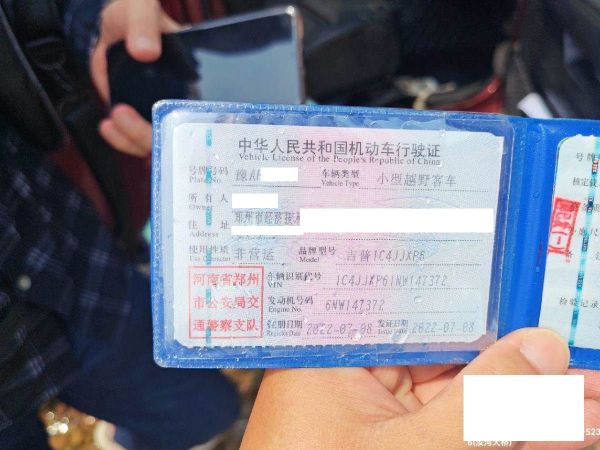 中华人民共和国机动车行驶证
Vehicle License of the People's Republic of China
号牌号码 豫A 车辆类型 小型越野客车
Plate No. Vehicle Type
所有人
Owner
住址 郑州市经济技术
Address
使用性质 非营运 品牌型号 吉普1C4JJXP6
Use Character Model
河南省郑州
市公安局交
通警察支队
车辆识别代号 1C4JJXP61NW147372
VIN
发动机号码 6NW147372
Engine No.
注册日期 2022-07-08 发证日期 2022-07-08
Register Date Issue Date
号牌
核定载
检验记录
523
(汝河大桥)